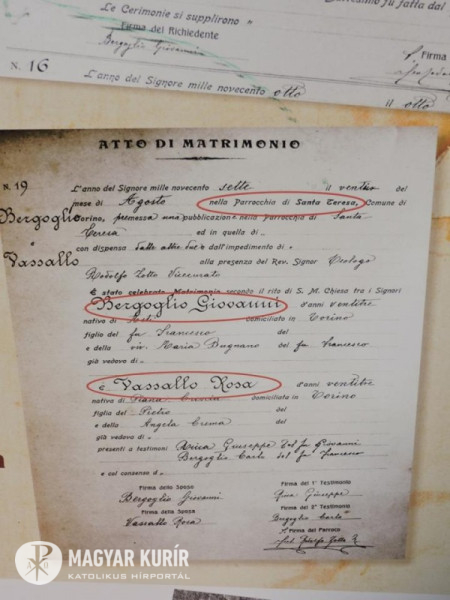 Le Cerimonie si supplirono
Firma del Richiedente
Bergoglio Giovanni
Firma
N. 16
L'anno del Signore mille novecento otto il otto
ATTO DI MATRIMONIO
N. 19
Bergoglio
e
Vassallo
L'anno del Signore mille novecento sette il ventuno del
mese di Agosto nella Parrocchia di Santa Teresa, Comune di
Torino, premessa una pubblicazione nella Parrocchia di Santa
Teresa ed in quella di
con dispensa dalle altre due e dall'impedimento di
alla presenza del Rev. Signor Teologo
Rodolfo
È stato celebrato Matrimonio secondo il rito di S. M. Chiesa tra i Signori
Bergoglio Giovanni d'anni ventitre
nativo di Asti domiciliato in Torino
figlio del fu Francesco del
e della viv. Maria Bugnano del fu Francesco
già vedovo di
e Vassallo Rosa d'anni ventitre
nativa di Piana domiciliata in Torino
figlia del Pietro del
e della Angela Crema del
già vedova di
presenti a testimoni Giuseppe del fu Giovanni
Bergoglio Carlo del fu Francesco
e col consenso di
Firma dello Sposo
Bergoglio Giovanni
Firma della Sposa
Vassallo Rosa
Firma del 1° Testimonio
Giuseppe
Firma del 2° Testimonio
Bergoglio Carlo
Firma del Parroco
MAGYAR KURÍR
KATOLIKUS HÍRPORTÁL